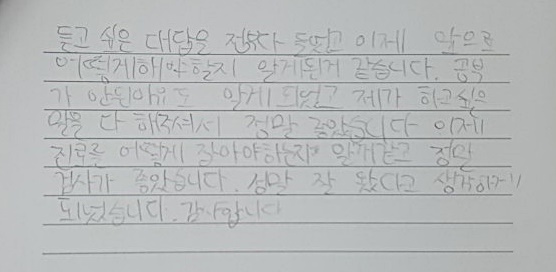 듣고 싶은 대답을 전부다 들었고 이제 앞으로
어떻게해야할지 알게된거 같습니다. 공부
가 안된이유도 알게 되었고 제가 하고싶은
말을 다 해주셔서 정말 좋았습니다 이제
진로를 어떻게 잡아야하는지 알거같고 정말
검사가 좋았습니다. 정말 잘 왔다고 생각하게
되었습니다. 감사합니다